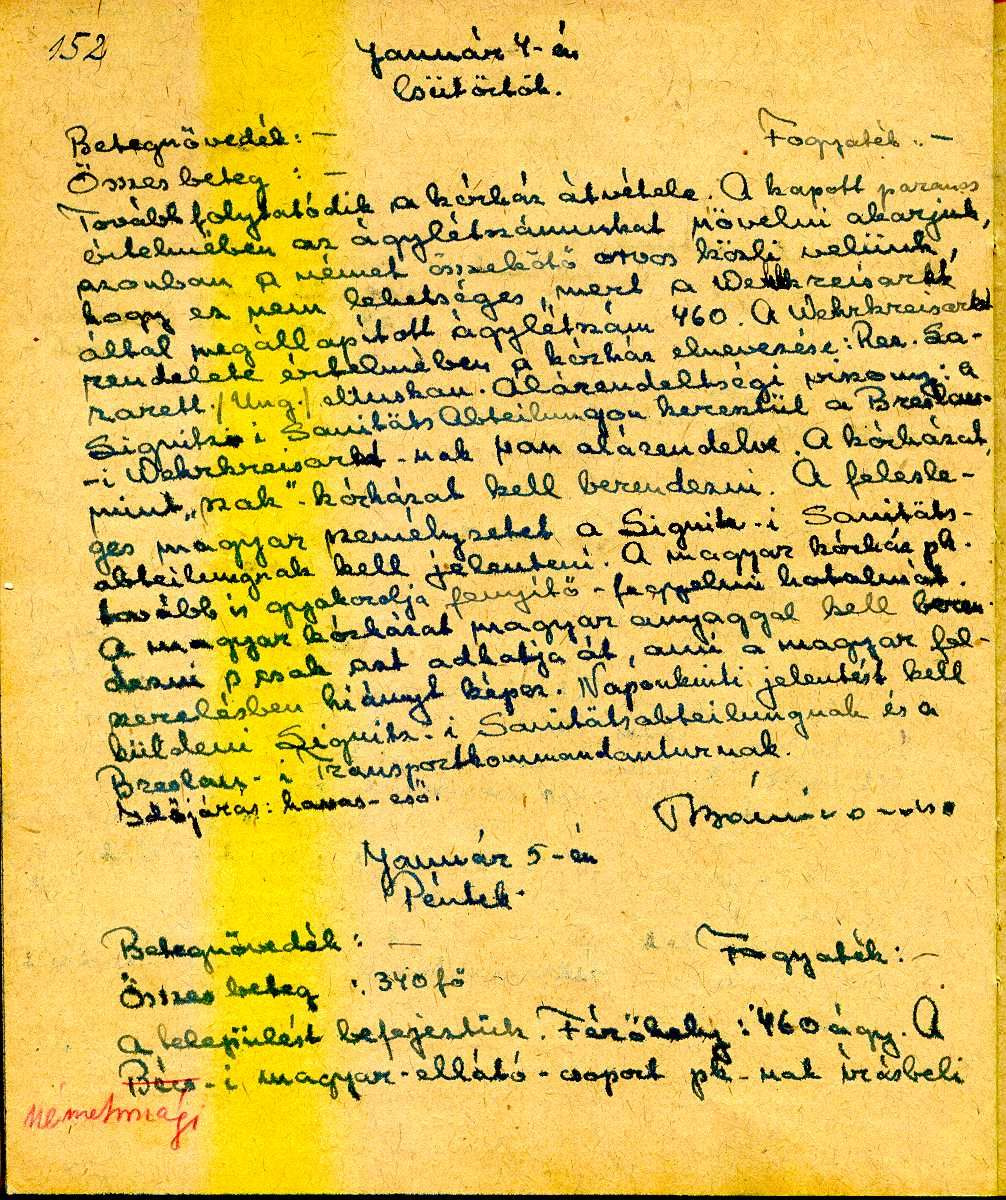 152
Január 4-én
Csütörtök.
Betegnövedék: –
Fogyaték: –
Összes beteg : –
Tovább folytatódik a kórház átvétele. A kapott parancs
értelmében az ágylétszámunkat növelni akarjuk,
azonban a német összekötő orvos közli velünk,
hogy ez nem lehetséges, mert a Wehrkreisarzt
által megállapított ágylétszám 460. A Wehrkreisarzt
rendelete értelmében a kórház elnevezése: Res. La-
zarett /Ung./ Muskau. Alárendeltségi viszony: a
Lignitz-i Sanitäts Abteilungon keresztül a Breslau-
-i Wehrkreisarzt-nak van alárendelve. A kórházat,
mint „szak"-kórházat kell berendezni. A felesle-
ges magyar személyzetet a Lignitz-i Sanitäts-
abteilungnak kell jelenteni. A magyar kórház pk.
tovább is gyakorolja fenyítő-fegyelmi hatalmát.
A magyar kórházat magyar anyaggal kell beren-
dezni s csak azt adhatja át, ami a magyar fel-
szerelésben hiányt képez. Naponkinti jelentést kell
küldeni Lignitz-i Sanitätsabteilungnak és a
Breslau-i Transportkommandanturnak.
Időjárás: havas-eső.
Január 5-én
Péntek.
Betegnövedék: –
Fogyaték: –
Összes beteg : 340 fő
A települést befejeztük. Férőhely: 460 ágy. A
Bécs-i magyar-ellátó-csoport pk-nak írásbeli
németországi